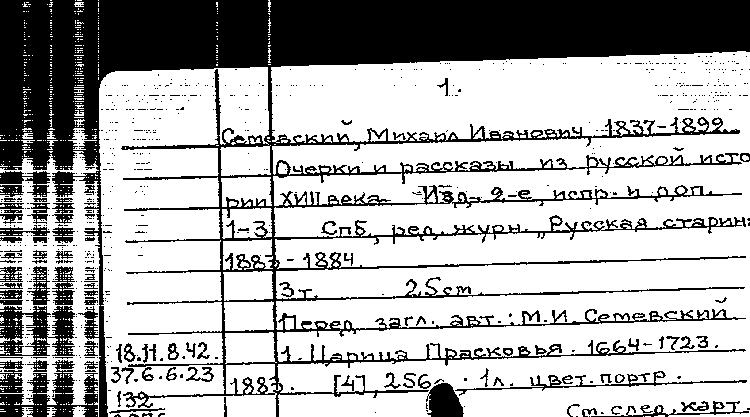 1.
Семевский, Михаил Иванович, 1837-1899.
Очерки и рассказы из русской исто
рии XVIII века. Изд. 2-е, испр. и доп.
1-3 Спб., ред. журн. „Русская старина
1883-1884.
3т. 25cm.
Перед загл. авт.: М.И. Семевский
18.11.8.42. 1. Царица Прасковья. 1664-1723.
37.6.6.23 1883. [4], 256 ; 1л. цвет. портр.
132
См. след. карт